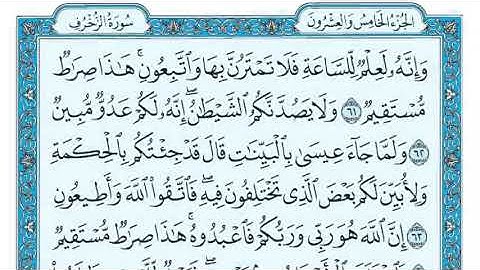 سُورَةُ الزُّخْرُفِ الجُزْءُ الخَامِسُ وَالعِشْرُونَ
وَإِنَّهُۥ لَعِلْمٌ لِّلسَّاعَةِ فَلَا تَمْتَرُنَّ بِهَا وَٱتَّبِعُونِ ۚ هَٰذَا صِرَٰطٌ
مُّسْتَقِيمٌ ٦١ وَلَا يَصُدَّنَّكُمُ ٱلشَّيْطَٰنُ ۖ إِنَّهُۥ لَكُمْ عَدُوٌّ مُّبِينٌ
٦٢ وَلَمَّا جَآءَ عِيسَىٰ بِٱلْبَيِّنَٰتِ قَالَ قَدْ جِئْتُكُم بِٱلْحِكْمَةِ
وَلِأُبَيِّنَ لَكُم بَعْضَ ٱلَّذِى تَخْتَلِفُونَ فِيهِ ۖ فَٱتَّقُوا۟ ٱللَّهَ وَأَطِيعُونِ
٦٣ إِنَّ ٱللَّهَ هُوَ رَبِّى وَرَبُّكُمْ فَٱعْبُدُوهُ ۚ هَٰذَا صِرَٰطٌ مُّسْتَقِيمٌ